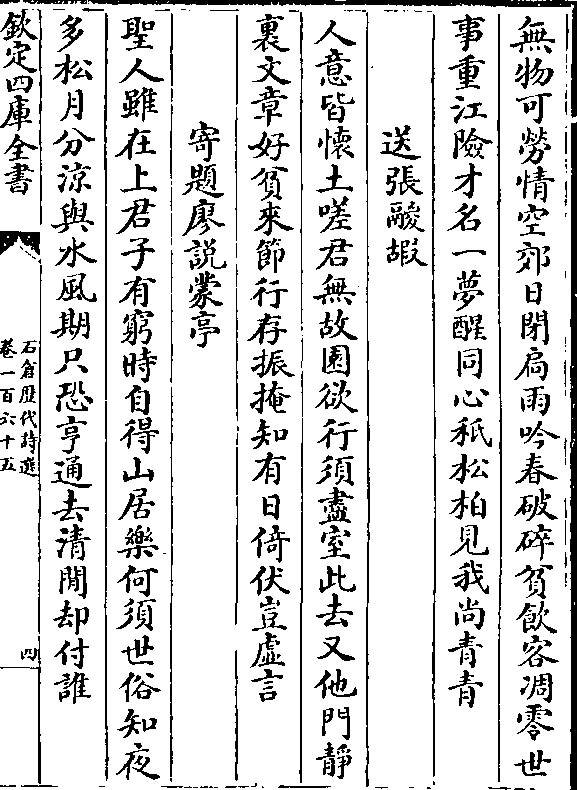 無物可勞情空郊日閉扃雨吟春破碎貧飲客凋零世
事重江險才名一夢醒同心秖松柏見我尚青青
送張酸嘏
人意皆懷土嗟君無故園欲行須盡室此去又他門靜
裏文章好貧來節行存振掩知有日倚伏豈虛言
寄題廖說蒙亭
聖人雖在上君子有窮時自得山居樂何須世俗知夜
多松月分涼與水風期只恐亨通去清閒却付誰
欽定四庫全書
石倉歷代詩選
卷一百六十五
四